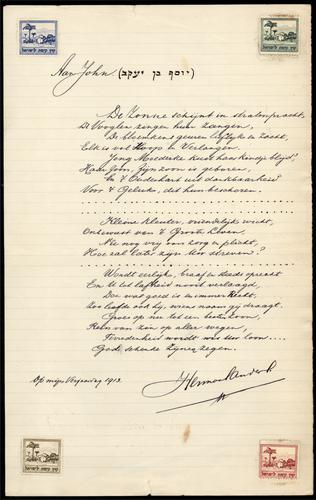 Aan John (יוסף בן יעקב)
De Zonne schijnt in stralenpracht,
De Vooglen zingen hun zangen,
De bloemkens geuren lieflijk en zacht,
Elk is vol Hoop en Verlangen.
Jong Moederke kust haar Kindje blijd!
Haar Zoon, zijn zoon is geboren,
In 't Ouderhart uit dankbaarheid
Voor 't Geluk, dat hun beschoren.
Kleine Kleuter, vriendelijk wicht,
Onbewust van 't Groote Leven,
Nu nog vrij van zorg en plicht,
Hoe zal later zijn Uw streven?
Wordt eerlijk, braaf en steeds oprecht
En U let liefst nooit verlaagd,
Doe wat goed is en immer Recht,
Zoo liefd' ook hij, wiens naam gij draagt.
Groei op nu tot een besten Zoon,
Rein van zin op alle wegen,
Tevredenheid wordt Uw loon....
God schenke Zijnen zegen.
Op mijn Verjaardag 1913.
קרן קימת לישראל
קרן קימת לישראל
קרן קימת לישראל
קרן קימת לישראל